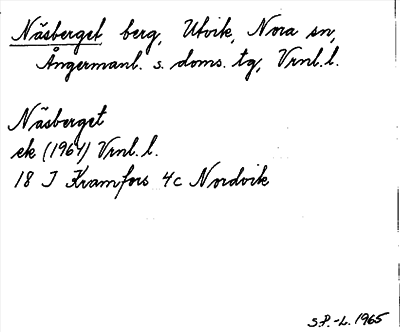 Näsberget berg, Utvik, Nora sn,
Ångermanl. s. doms. tg, Vrnl. l.
Näsberget
ek (1964) Vrnl. l.
18 I Kramfors 4c Nordvik
S.P.-L. 1965